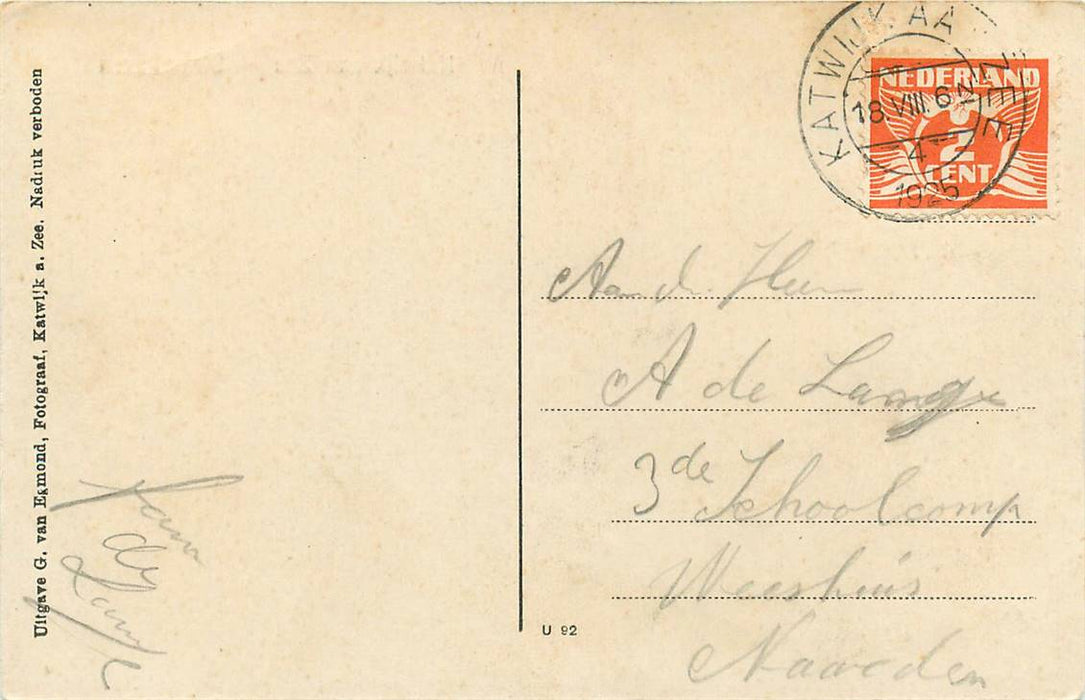 Uitgave G. van Egmond, Fotograaf, Katwijk a. Zee. Nadruk verboden
KATWIJK AAN ZEE
18.VIII. 6-7N
4
1925
NEDERLAND
2
CENT
Aan den Heer
A de Lange
3de Schoolcomp
Weeshuis
Naarden
de Lange
U 92